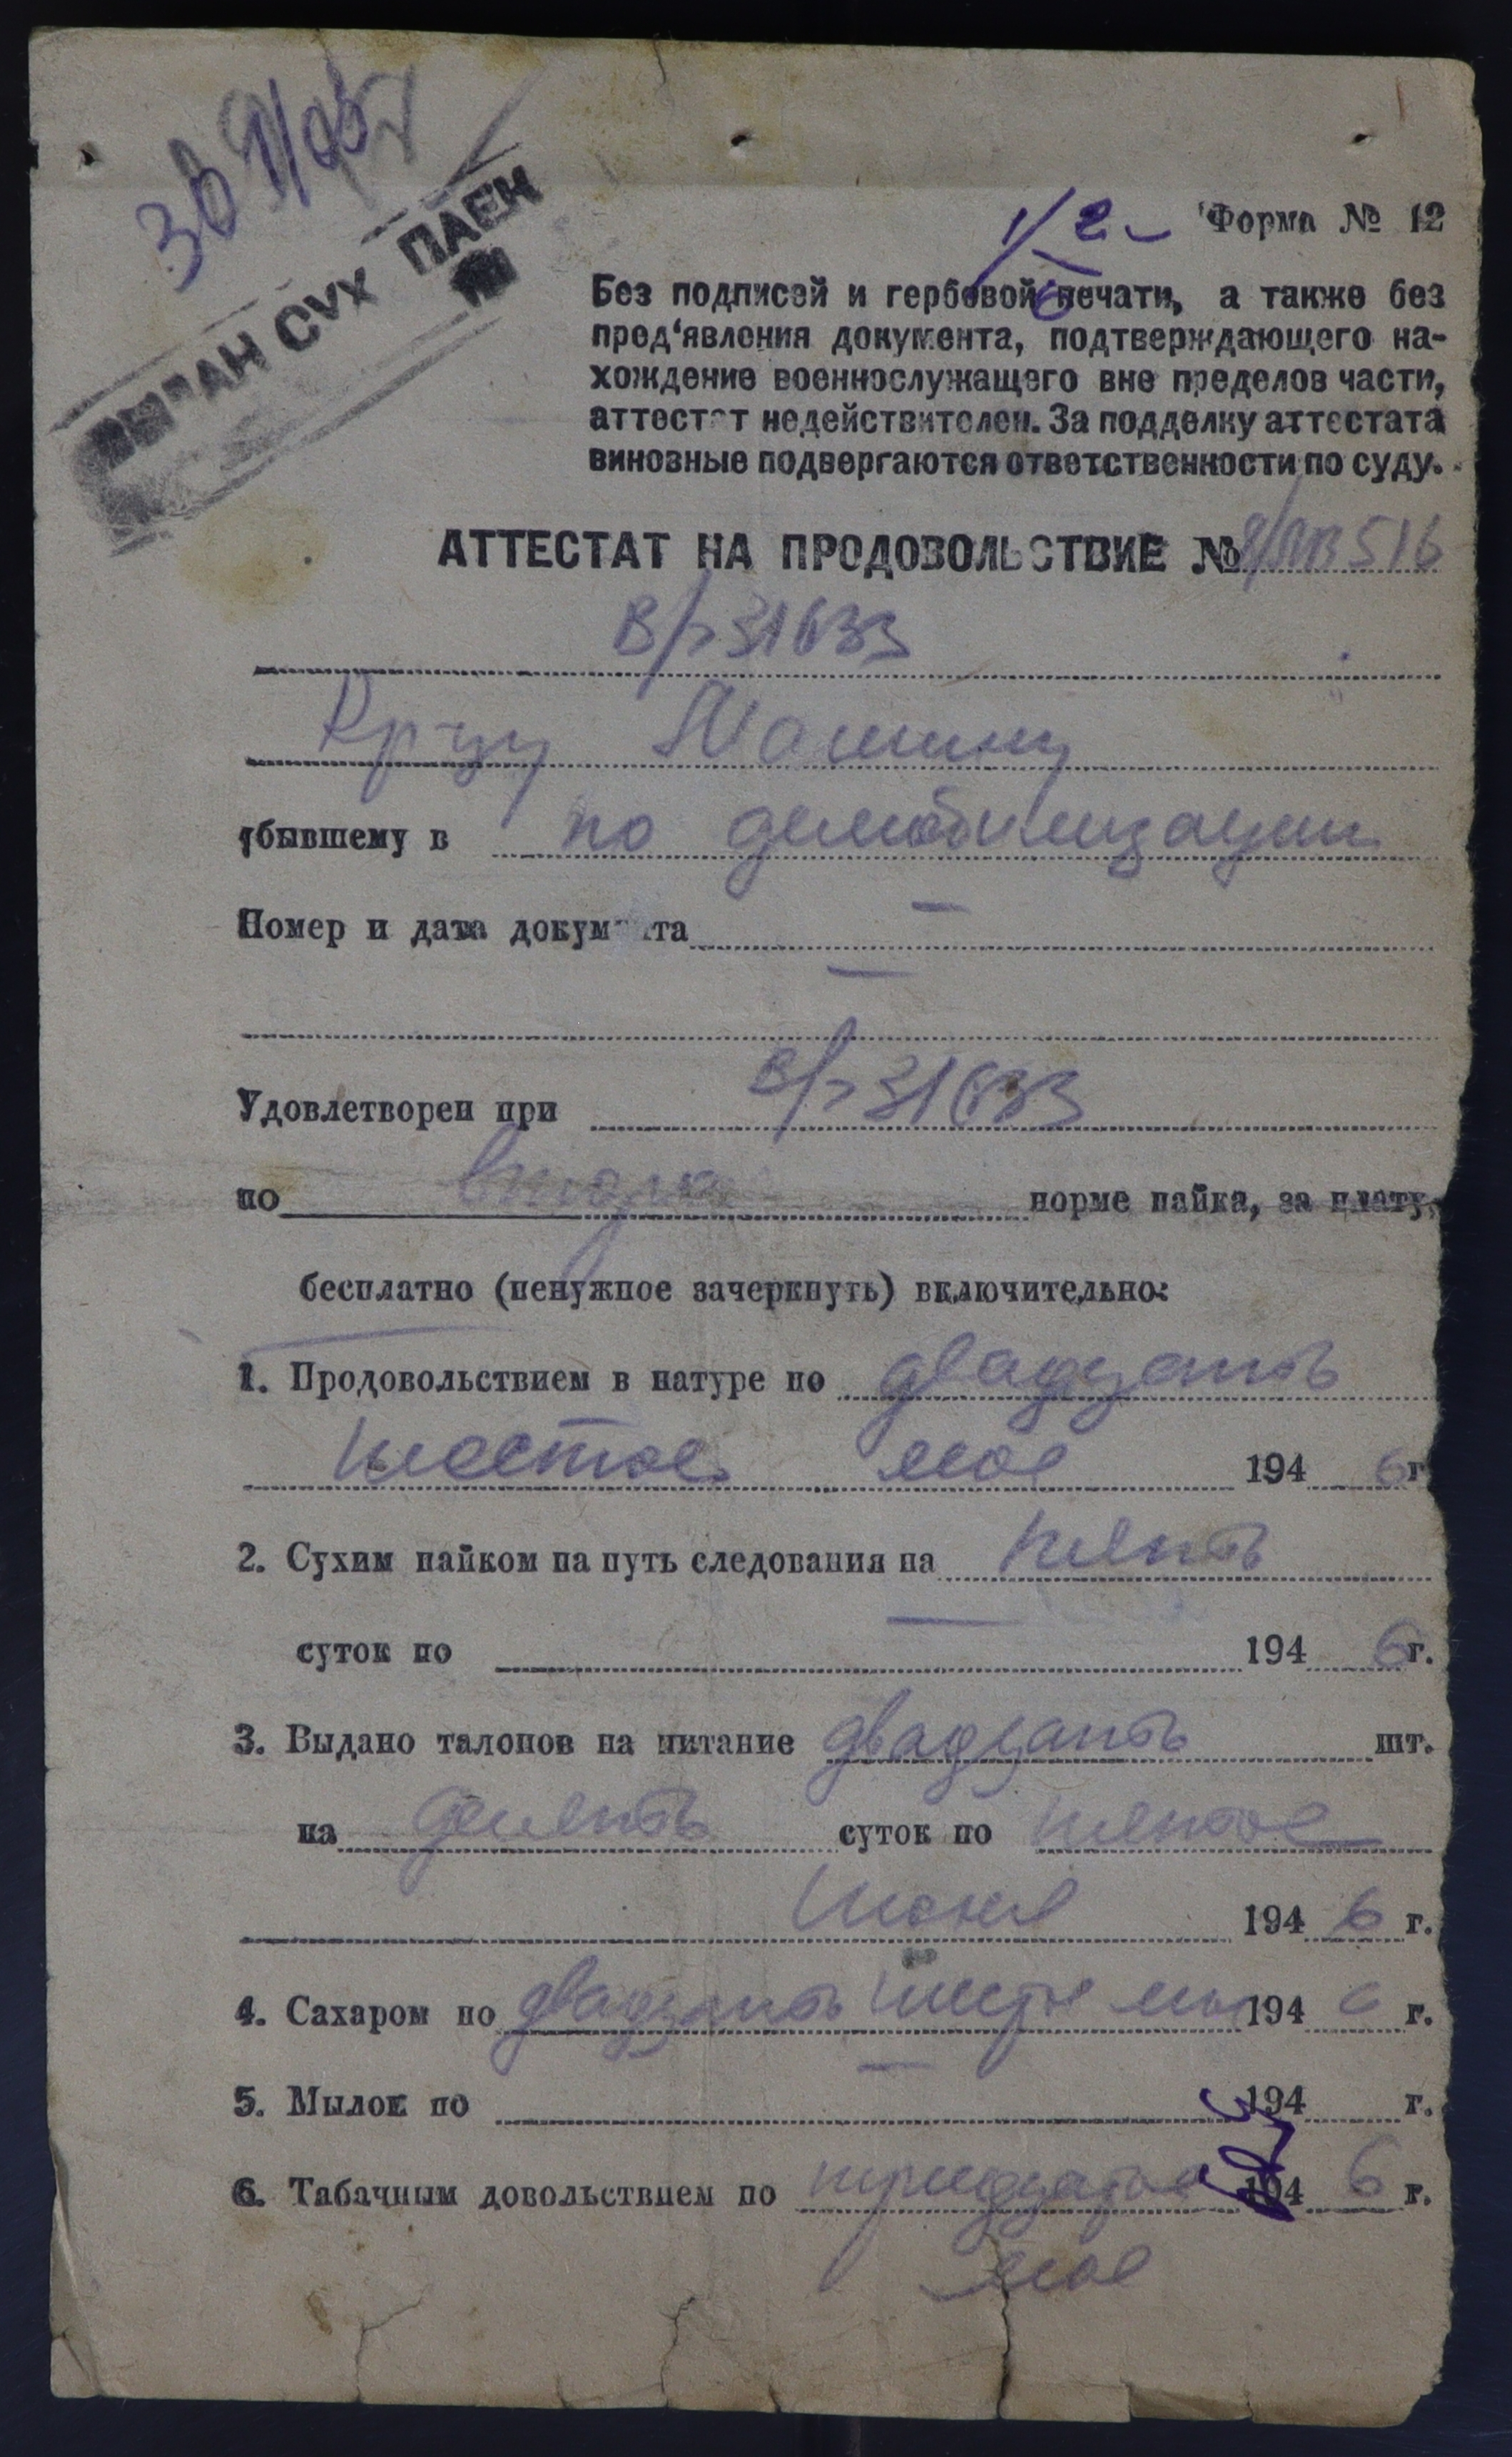 ВЫДАН СУХ ПАЕК
Форма № 12
Без подписей и гербовой печати, а также без
пред‘явления документа, подтверждающего на-
хождение военнослужащего вне пределов части,
аттестат недействителен. За подделку аттестата
виновные подвергаются ответственности по суду.
АТТЕСТАТ НА ПРОДОВОЛЬСТВИЕ №
31633
Кр-цу
убывшему в по демобилизации
Номер и дата документа —
—
Удовлетворен при 31633
по второй норме пайка, за плату,
бесплатно (ненужное зачеркнуть) включительно:
1. Продовольствием в натуре по двадцать
шестое мая 1946 г.
2. Сухим пайком на путь следования на пять
суток по — 1946 г.
3. Выдано талонов на питание двадцать шт.
на девять суток по пятое
июня 1946 г.
4. Сахаром по двадцать шестое мая 1946 г.
5. Мылом по — 194 г.
6. Табачным довольствием по тридцатое 1946 г.
мая